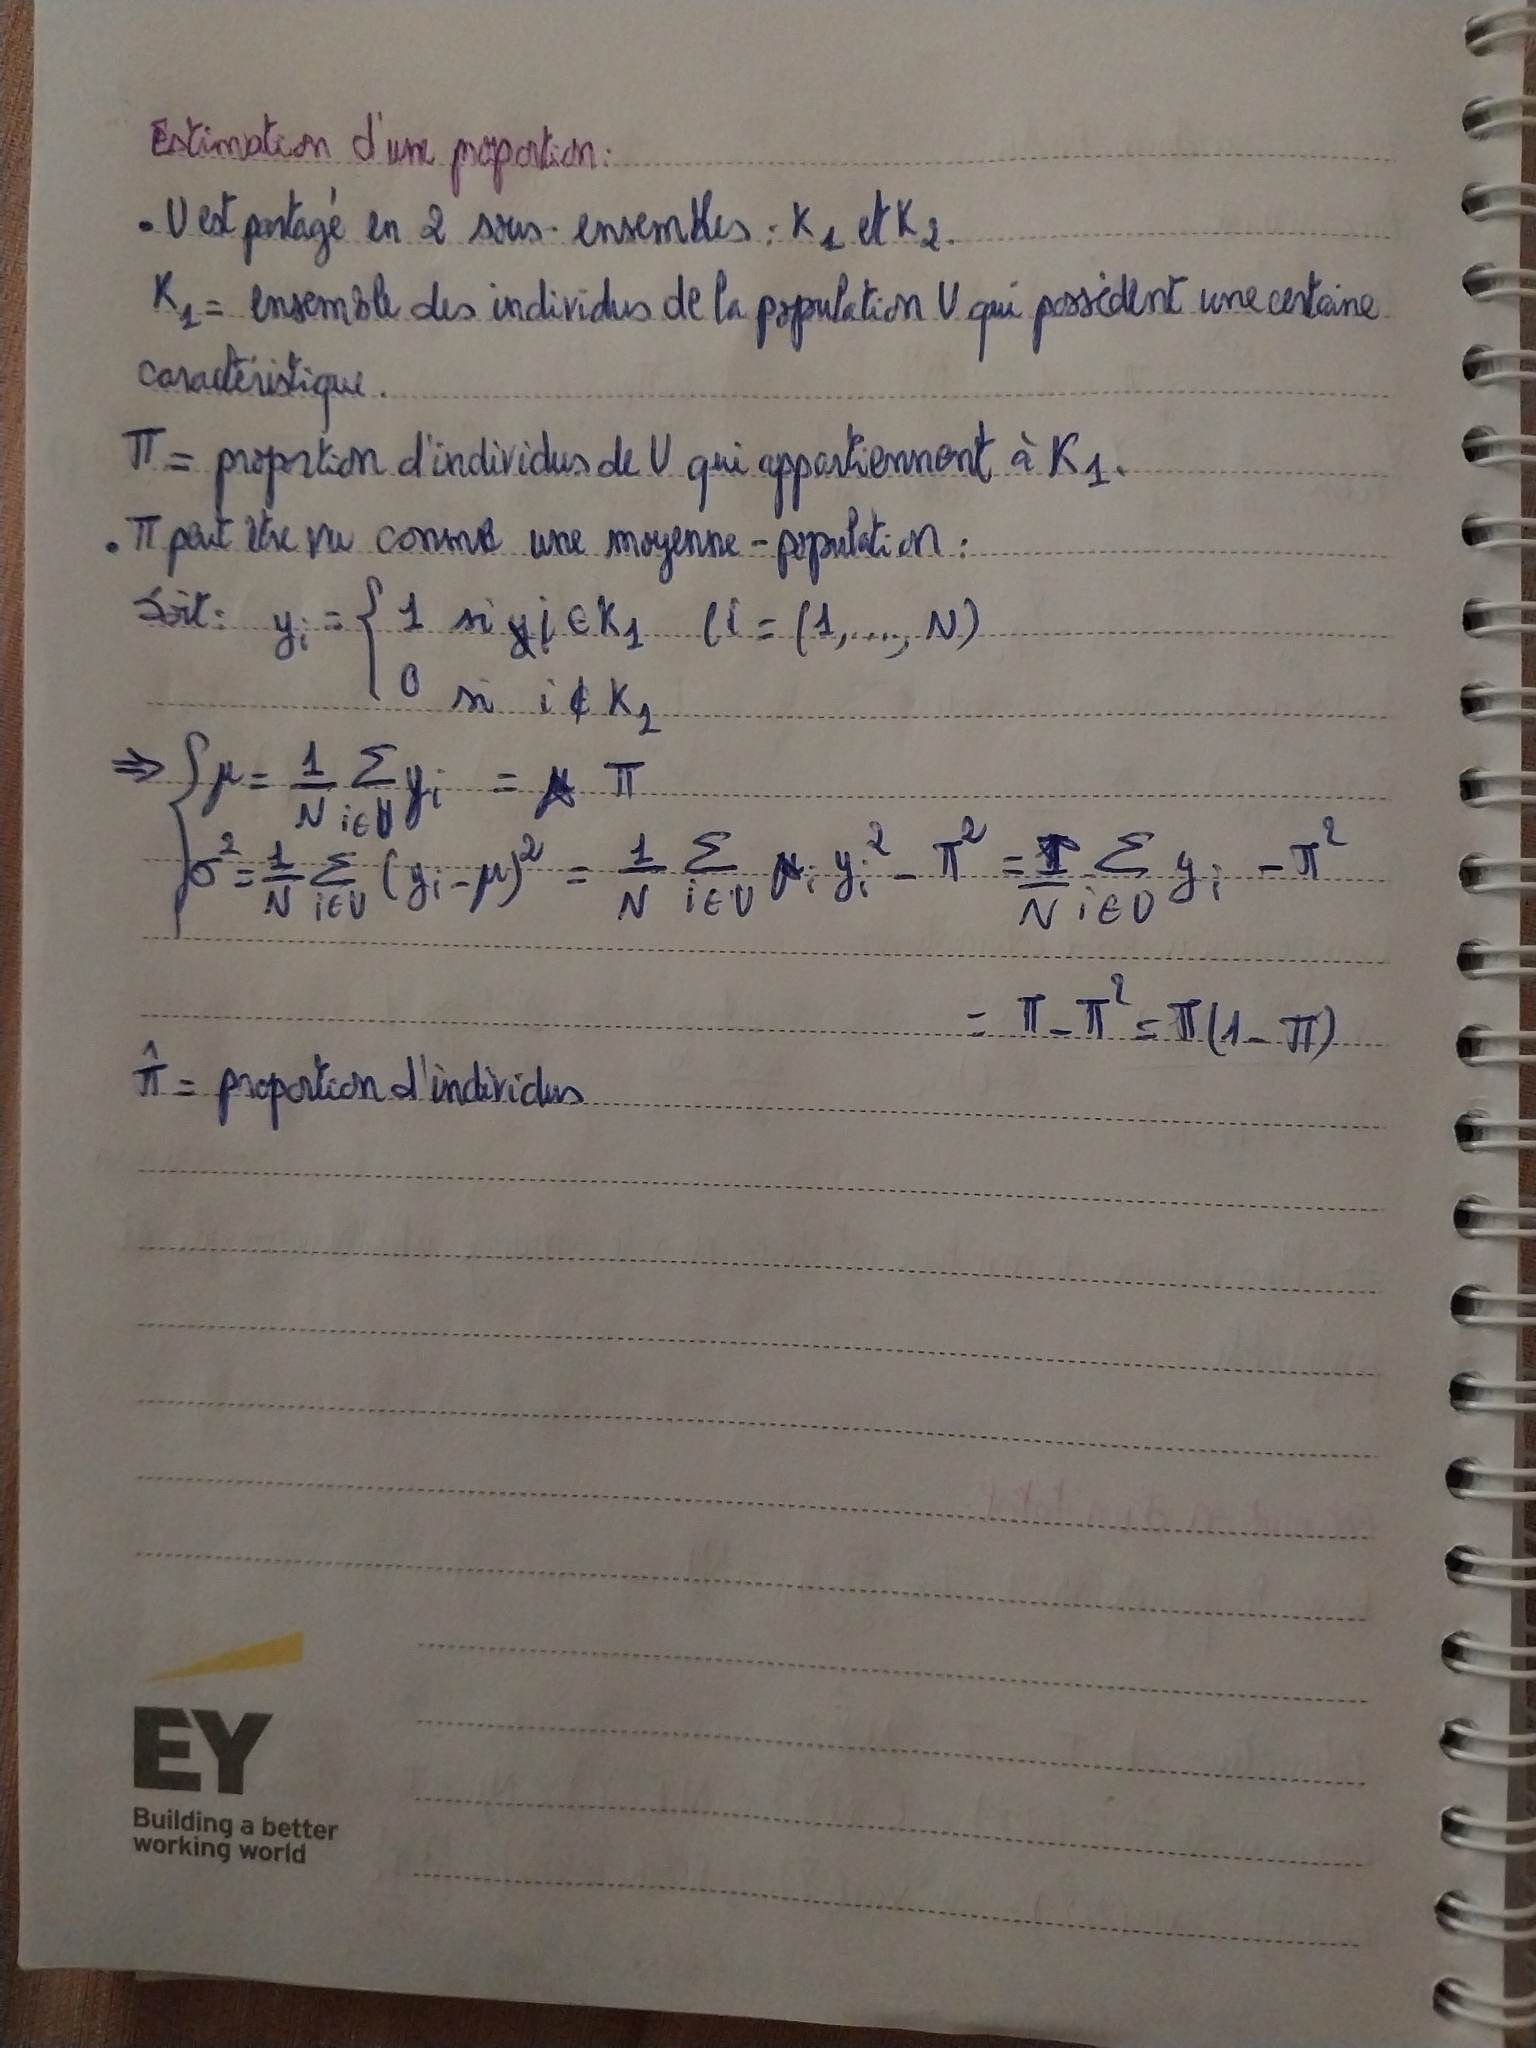 Estimation d'une proportion:
• U est partagé en 2 sous-ensembles: K₁ et K₂.
K₁ = ensemble des individus de la population U qui possèdent une certaine
caractéristique.
Π = proportion d'individus de U qui appartiennent à K₁.
• Π peut être vu comme une moyenne-population:
Soit: yᵢ = { 1 si i ∈ K₁ (i = (1,..., N)
0 si i ∉ K₂
⇒ { μ = 1/N Σ_{i∈U} yᵢ = Π
σ² = 1/N Σ_{i∈U} (yᵢ - μ)² = 1/N Σ_{i∈U} yᵢ² - Π² = 1/N Σ_{i∈U} yᵢ - Π²
= Π - Π² = Π(1 - Π)
Π̂ = proportion d'individus
EY
Building a better
working world